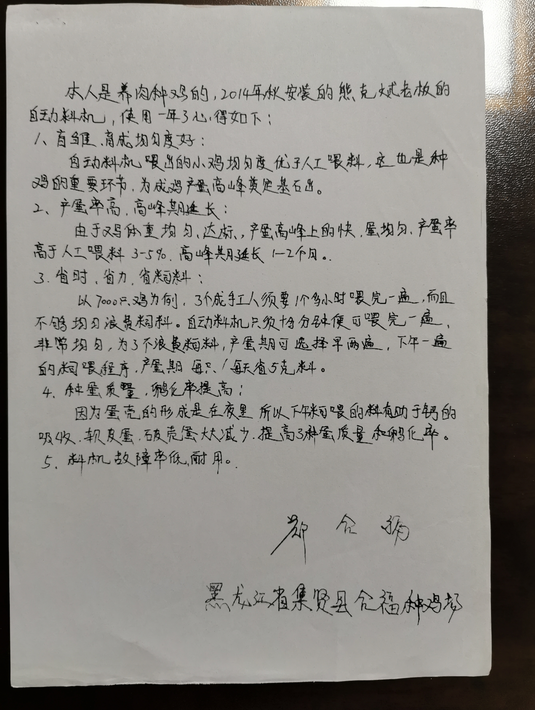 本人是养肉种鸡的，2014年秋安装的熊克斌老板的
自动料机，使用一年了心得如下：
1、育雏、育成均匀度好：
自动料机喂出的小鸡均匀度优于人工喂料，这也是种
鸡的重要环节，为成鸡产蛋高峰奠定基石出。
2、产蛋率高，高峰期延长：
由于鸡体重均匀、达标，产蛋高峰上的快、蛋均匀、产蛋率
高于人工喂料3-5%，高峰期延长1-2个月。
3、省时，省力，省饲料：
以7000只鸡为例，3个成手工人须要1个多小时喂完一遍，而且
不够均匀浪费饲料。自动料机只须十分钟便可喂完一遍、
非常均匀，为了不浪费饲料，产蛋期可选择早两遍，下午一遍
的饲喂程序，产蛋期每只/每天省5克料。
4、种蛋质量，孵化率提高：
因为蛋壳的形成是在夜里所以下午饲喂的料有助于钙的
吸收，软皮蛋、破壳蛋大大减少，提高了种蛋质量和孵化率。
5、料机故障率低，耐用。
郑合
黑龙江省集贤县合福种鸡场